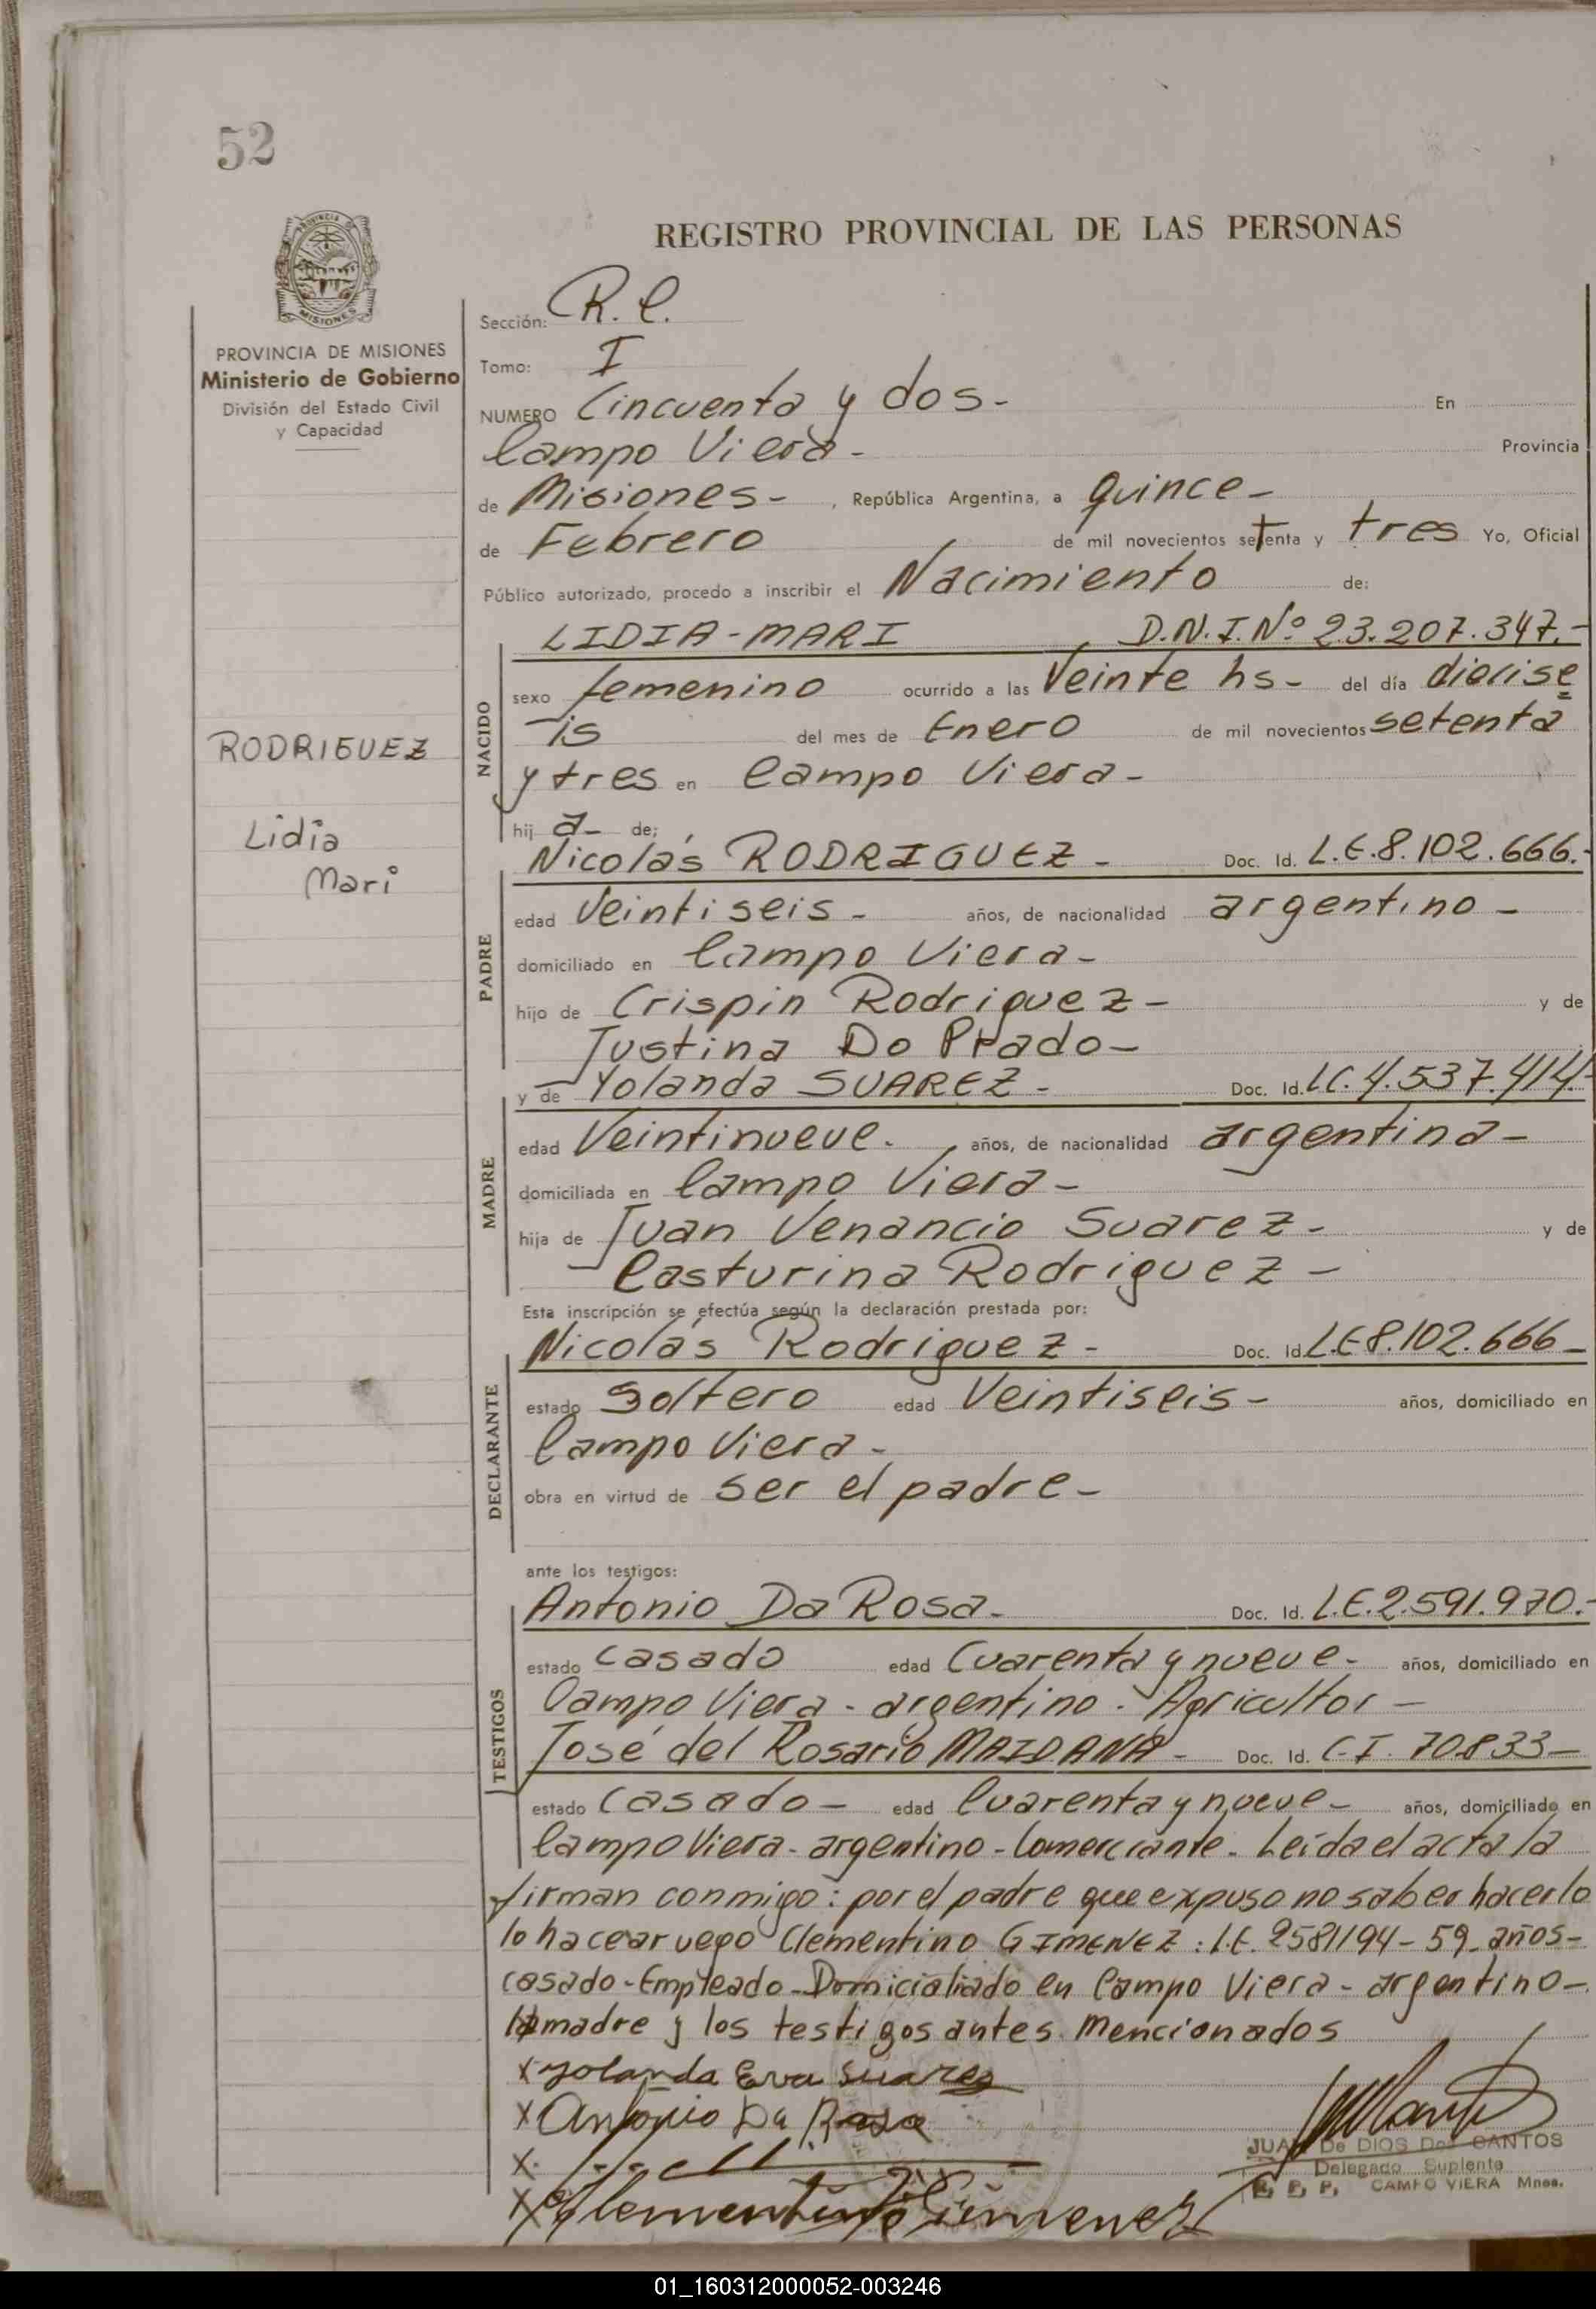 52
REGISTRO PROVINCIAL DE LAS PERSONAS
PROVINCIA DE MISIONES
Ministerio de Gobierno
División del Estado Civil
y Capacidad
RODRIGUEZ
Lidia
Mari
Sección: R. C.
Tomo: I
NUMERO Cincuenta y dos- En
Campo Viera- Provincia
de Misiones- , República Argentina, a quince-
de Febrero de mil novecientos setenta y tres Yo, Oficial
Público autorizado, procedo a inscribir el Nacimiento de:
NACIDO
LIDIA-MARI D.N.I.Nº 23.207.347.-
sexo femenino ocurrido a las Veinte hs- del día diecise
is del mes de Enero de mil novecientos setenta
y tres en Campo Viera-
hij a- de;
PADRE
Nicolás RODRIGUEZ- Doc. Id. L.E.8.102.666.-
edad Veintiseis- años, de nacionalidad argentino-
domiciliado en Campo Viera-
hijo de Crispin Rodriguez- y de
Justina Do Prado-
MADRE
y de Yolanda SUAREZ- Doc. Id. LC.4.537.414.-
edad Veintinueve- años, de nacionalidad argentina-
domiciliada en Campo Viera-
hija de Juan Venancio Suarez- y de
Casturina Rodriguez-
Esta inscripción se efectúa según la declaración prestada por:
DECLARANTE
Nicolás Rodriguez- Doc. Id. L.E8.102.666-
estado Soltero edad Veintiseis- años, domiciliado en
Campo Viera-
obra en virtud de ser el padre-
ante los testigos:
TESTIGOS
Antonio Da Rosa- Doc. Id. L.E.2.591.970.-
estado casado edad Cuarenta y nueve- años, domiciliado en
Campo Viera- argentino- Agricultor-
José del Rosario MAIDANA- Doc. Id. C.I. 70.833-
estado Casado- edad Cuarenta y nueve- años, domiciliado en
Campo Viera- argentino- Comerciante- Leida el acta la
firman conmigo: por el padre que expuso no saber hacerlo
lo hace a ruego Clementino GIMENEZ: L.E. 2581194- 59 años-
casado- Empleado- Domicialiado en Campo Viera- argentino-
la madre y los testigos antes mencionados
x Yolanda Eva Suarez
x Antonio Da Rosa
x
x Clementino Gimenez
JUAN De DIOS Dos SANTOS
Delegado Suplente
R. P. P. CAMPO VIERA Mnes.
01_160312000052-003246